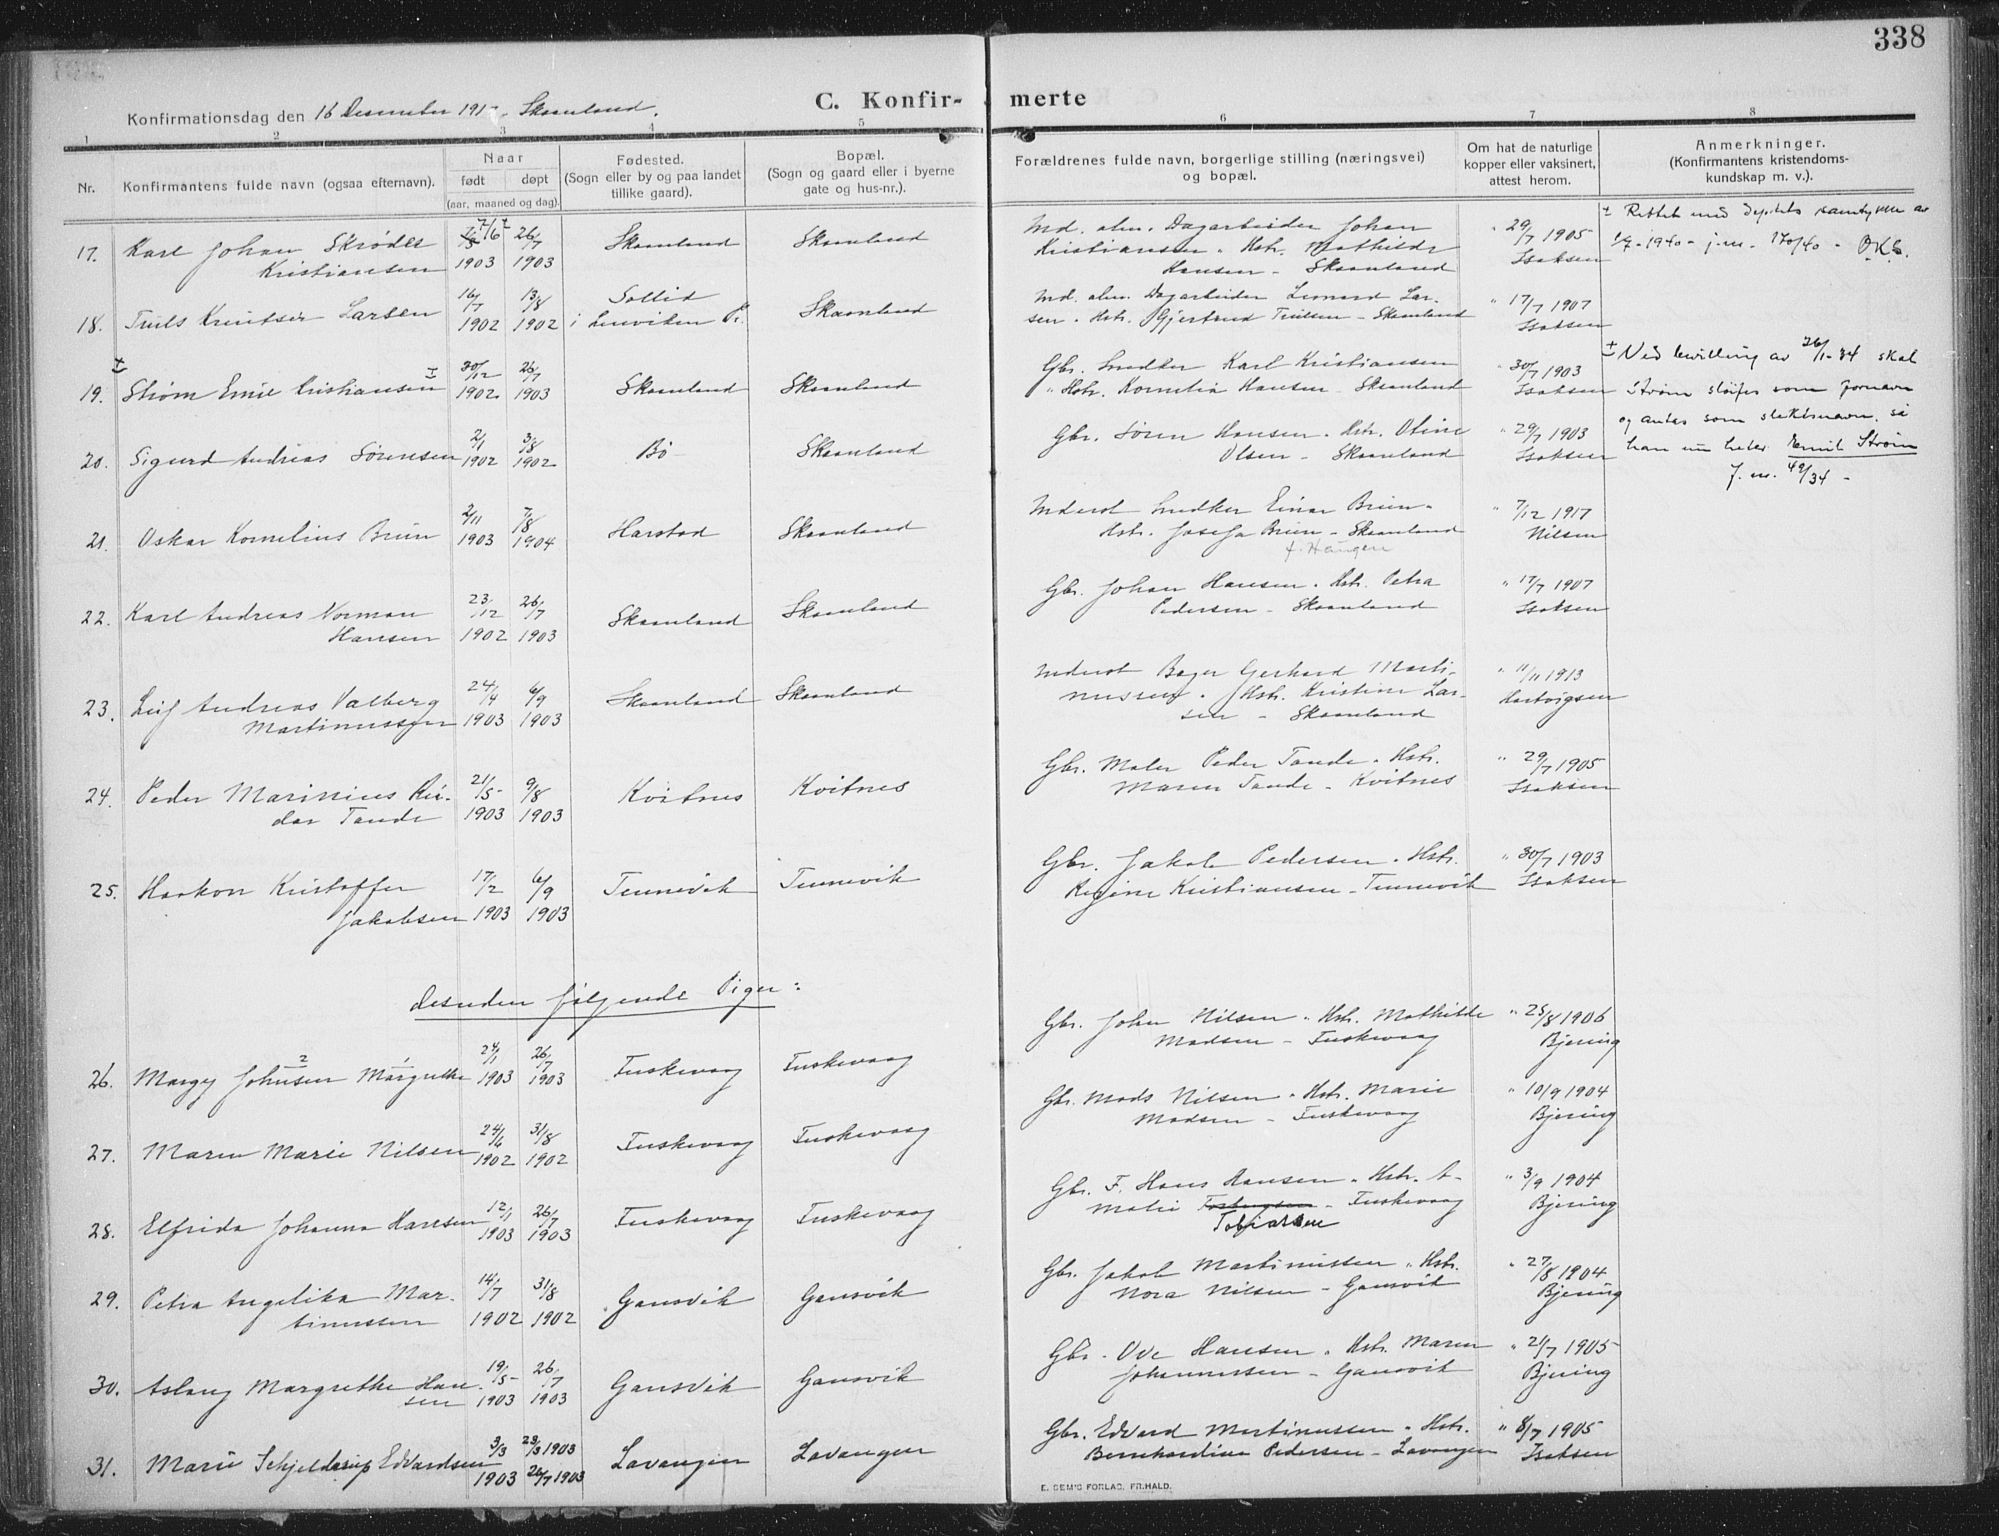 338
C. Konfir- merte
Konfirmationsdag den 16 Desember 191 Skaanland.
1 2 3 4 5 6 7 8
Nr.
Konfirmantens fulde navn (ogsaa efternavn).
Naar
født døpt
(aar, maaned og dag).
Fødested.
(Sogn eller by og paa landet
tillike gaard).
Bopæl.
(Sogn og gaard eller i byerne
gate og hus-nr.).
Forældrenes fulde navn, borgerlige stilling (næringsvei)
og bopæl.
Om hat de naturlige
kopper eller vaksinert,
attest herom.
Anmerkninger.
(Konfirmantens kristendoms-
kundskap m. v.).
17. Karl Johan Skrødes
Kristiansen
7/6 ± 26/7
1903 1903
Skaanland
Skaanland
Md. alm. Dagarbeider Johan
Kristiansen . Hstr. Mathilde
Hansen - Skaanland
" 29/7 1905
Isaksen
± Rettet med Dep.tets samtykke av
1/7-1940 - j.m. 170/40 - O.K.S.
18. Truls Knutser Larsen
16/7 13/8
1902 1902
Sollid
i Lenviken P.
Skaanland
Md. alm. Dagarbeider Leonard Lar-
sen . Hstr. Gjertrud Trulsen - Skaanland
" 17/7 1907
Isaksen
± 19. Strøm Emil Kristiansen ±
30/12 26/7
1902. 1903
Skaanland
Skaanland
Gbr. Snedker Karl Kristiansen
" Hstr. Kornelia Hansen - Skaanland
" 30/7 1903
Isaksen
± Ved bevilling av 26/1-34 skal
Strøm sløifes som fornavn
og antas som slektsnavn, så
han nu heter Emil Strøm
J. m. 49/34 -
20. Sigurd Andreas Sørensen
2/1 3/8
1902 1902
Bø
Skaanland
Gbr. Søren Hansen . Hstr. Oline
Olsen - Skaanland
" 29/7 1903
Isaksen
21. Oskar Kornelius Brun
2/11 7/8
1903 1904
Harstad
Skaanland
Inderst Snedker Einar Brun -
Hstr. Josefa Brun - Skaanland
f. Haugen
" 7/12 1917
Nilsen
22. Karl Andreas Norman
Hansen
23/12 26/7
1902 1903
Skaanland
Skaanland
Gbr. Johan Hansen . Hstr. Petra
Pedersen - Skaanland
" 17/7 1907
Isaksen
23. Leif Andreas Valberg
Martinussen
24/4 6/9
1903 1903
Skaanland
Skaanland
Inderst Bager Gerhard Marti-
nussen . Hstr. Kristine Lar-
sen - Skaanland
" 11/11 1913
Hartvigsen
24. Peder Marinius Rei-
dar Tande
21/5 9/8
1903 1903
Kvitnes
Kvitnes
Gbr. Maler Peder Tande . Hstr.
Maren Tande - Kvitnes
" 29/7 1905
Isaksen
25. Haakon Kristoffer
Jakobsen
17/2 6/9
1903 1903
Tennevik
Tennevik
Gbr. Jakob Pedersen . Hstr.
Regine Kristiansen - Tennevik
" 30/7 1903
Isaksen
desuden følgende Piger:
26. Margy Johnsen Margrethe
24/1 26/7
1903 1903
Fuskevaag
Fuskevaag
Gbr. John Nilsen . Hstr. Mathilde
Madsen - Fuskevaag
" 25/8 1906
Bjering
27. Maren Marie Nilsen
24/6 31/8
1902 1902
Fuskevaag
Fuskevaag
Gbr. Mads Nilsen . Hstr. Marie
Madsen - Fuskevaag
" 10/9 1904
Bjering
28. Elfrida Johanna Hansen
12/1 26/7
1903 1903
Fuskevaag
Fuskevaag
Gbr. F. Hans Hansen . Hstr. A-
malie - Fuskevaag
Tobiassen
" 3/9 1904
Bjering
29. Petra Angelika Mar-
tinussen
14/7 31/8
1902 1902
Gansvik
Gansvik
Gbr. Jakob Martinussen . Hstr.
Nora Nilsen - Gansvik
" 27/8 1904
Bjering
30. Aslaug Margrethe Han
sen
19/5 26/7
1903 1903
Gansvik
Gansvik
Gbr. Ove Hansen . Hstr. Maren
Johannessen - Gansvik
" 21/7 1905
Bjering
31. Marie Schjelderup Edvardsen
3/3 23/3 1903
1903 26/7 1903
Lavangen
Lavangen
Gbr. Edvard Martinussen . Hstr.
Bernhardine Pedersen - Lavangen
" 8/7 1905
Isaksen
E. SEM'S FORLAG, FR.HALD.